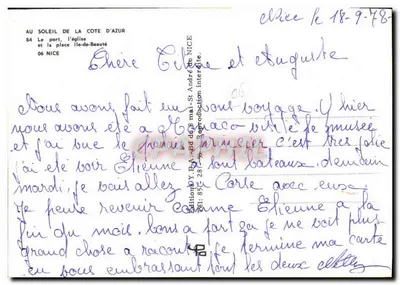 AU SOLEIL DE LA COTE D'AZUR
84 Le port, l'église
et la place Ile-de-Beauté
06 NICE
Nice le 18-9-78-
Chère Titine et Auguste
Nous avons fait un bons voyage. hier
nous avons été a Monaco visité le musée
et j'ai vue le c'est tres jolie
j'ai été voir Etienne sont bateaux. demain
mardi, je vais allez en Corse avec eux
je pense revenir comme Etienne a la
fin du mois. bons a part ça je ne voit plus
grand chose a raconté. je termine ma carte
en vous embrassant tout les deux